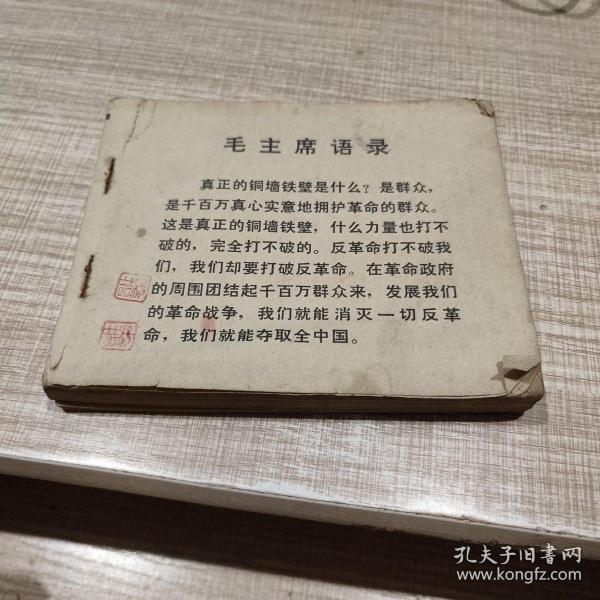 毛主席语录
真正的铜墙铁壁是什么？是群众，
是千百万真心实意地拥护革命的群众。
这是真正的铜墙铁壁，什么力量也打不
破的，完全打不破的。反革命打不破我
们，我们却要打破反革命。在革命政府
的周围团结起千百万群众来，发展我们
的革命战争，我们就能消灭一切反革
命，我们就能夺取全中国。
孔夫子旧书网
www.kongfz.com